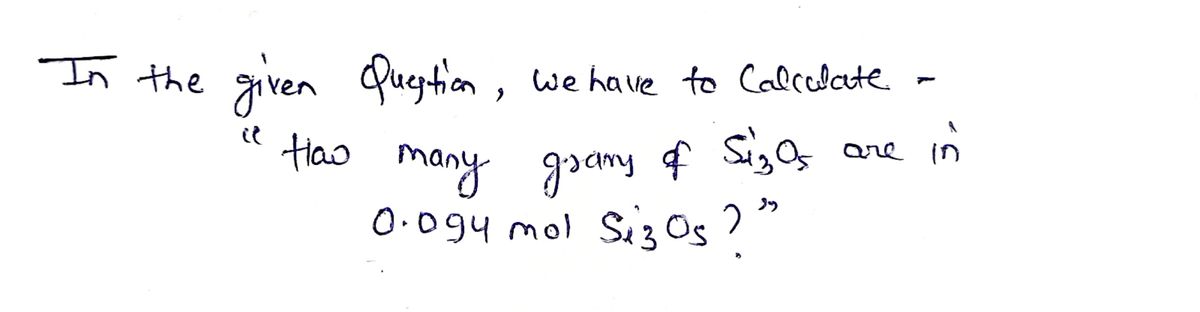 In the given Question, we have to Calculate -
"How many grams of Si3O5 are in
0.094 mol Si3O5?"